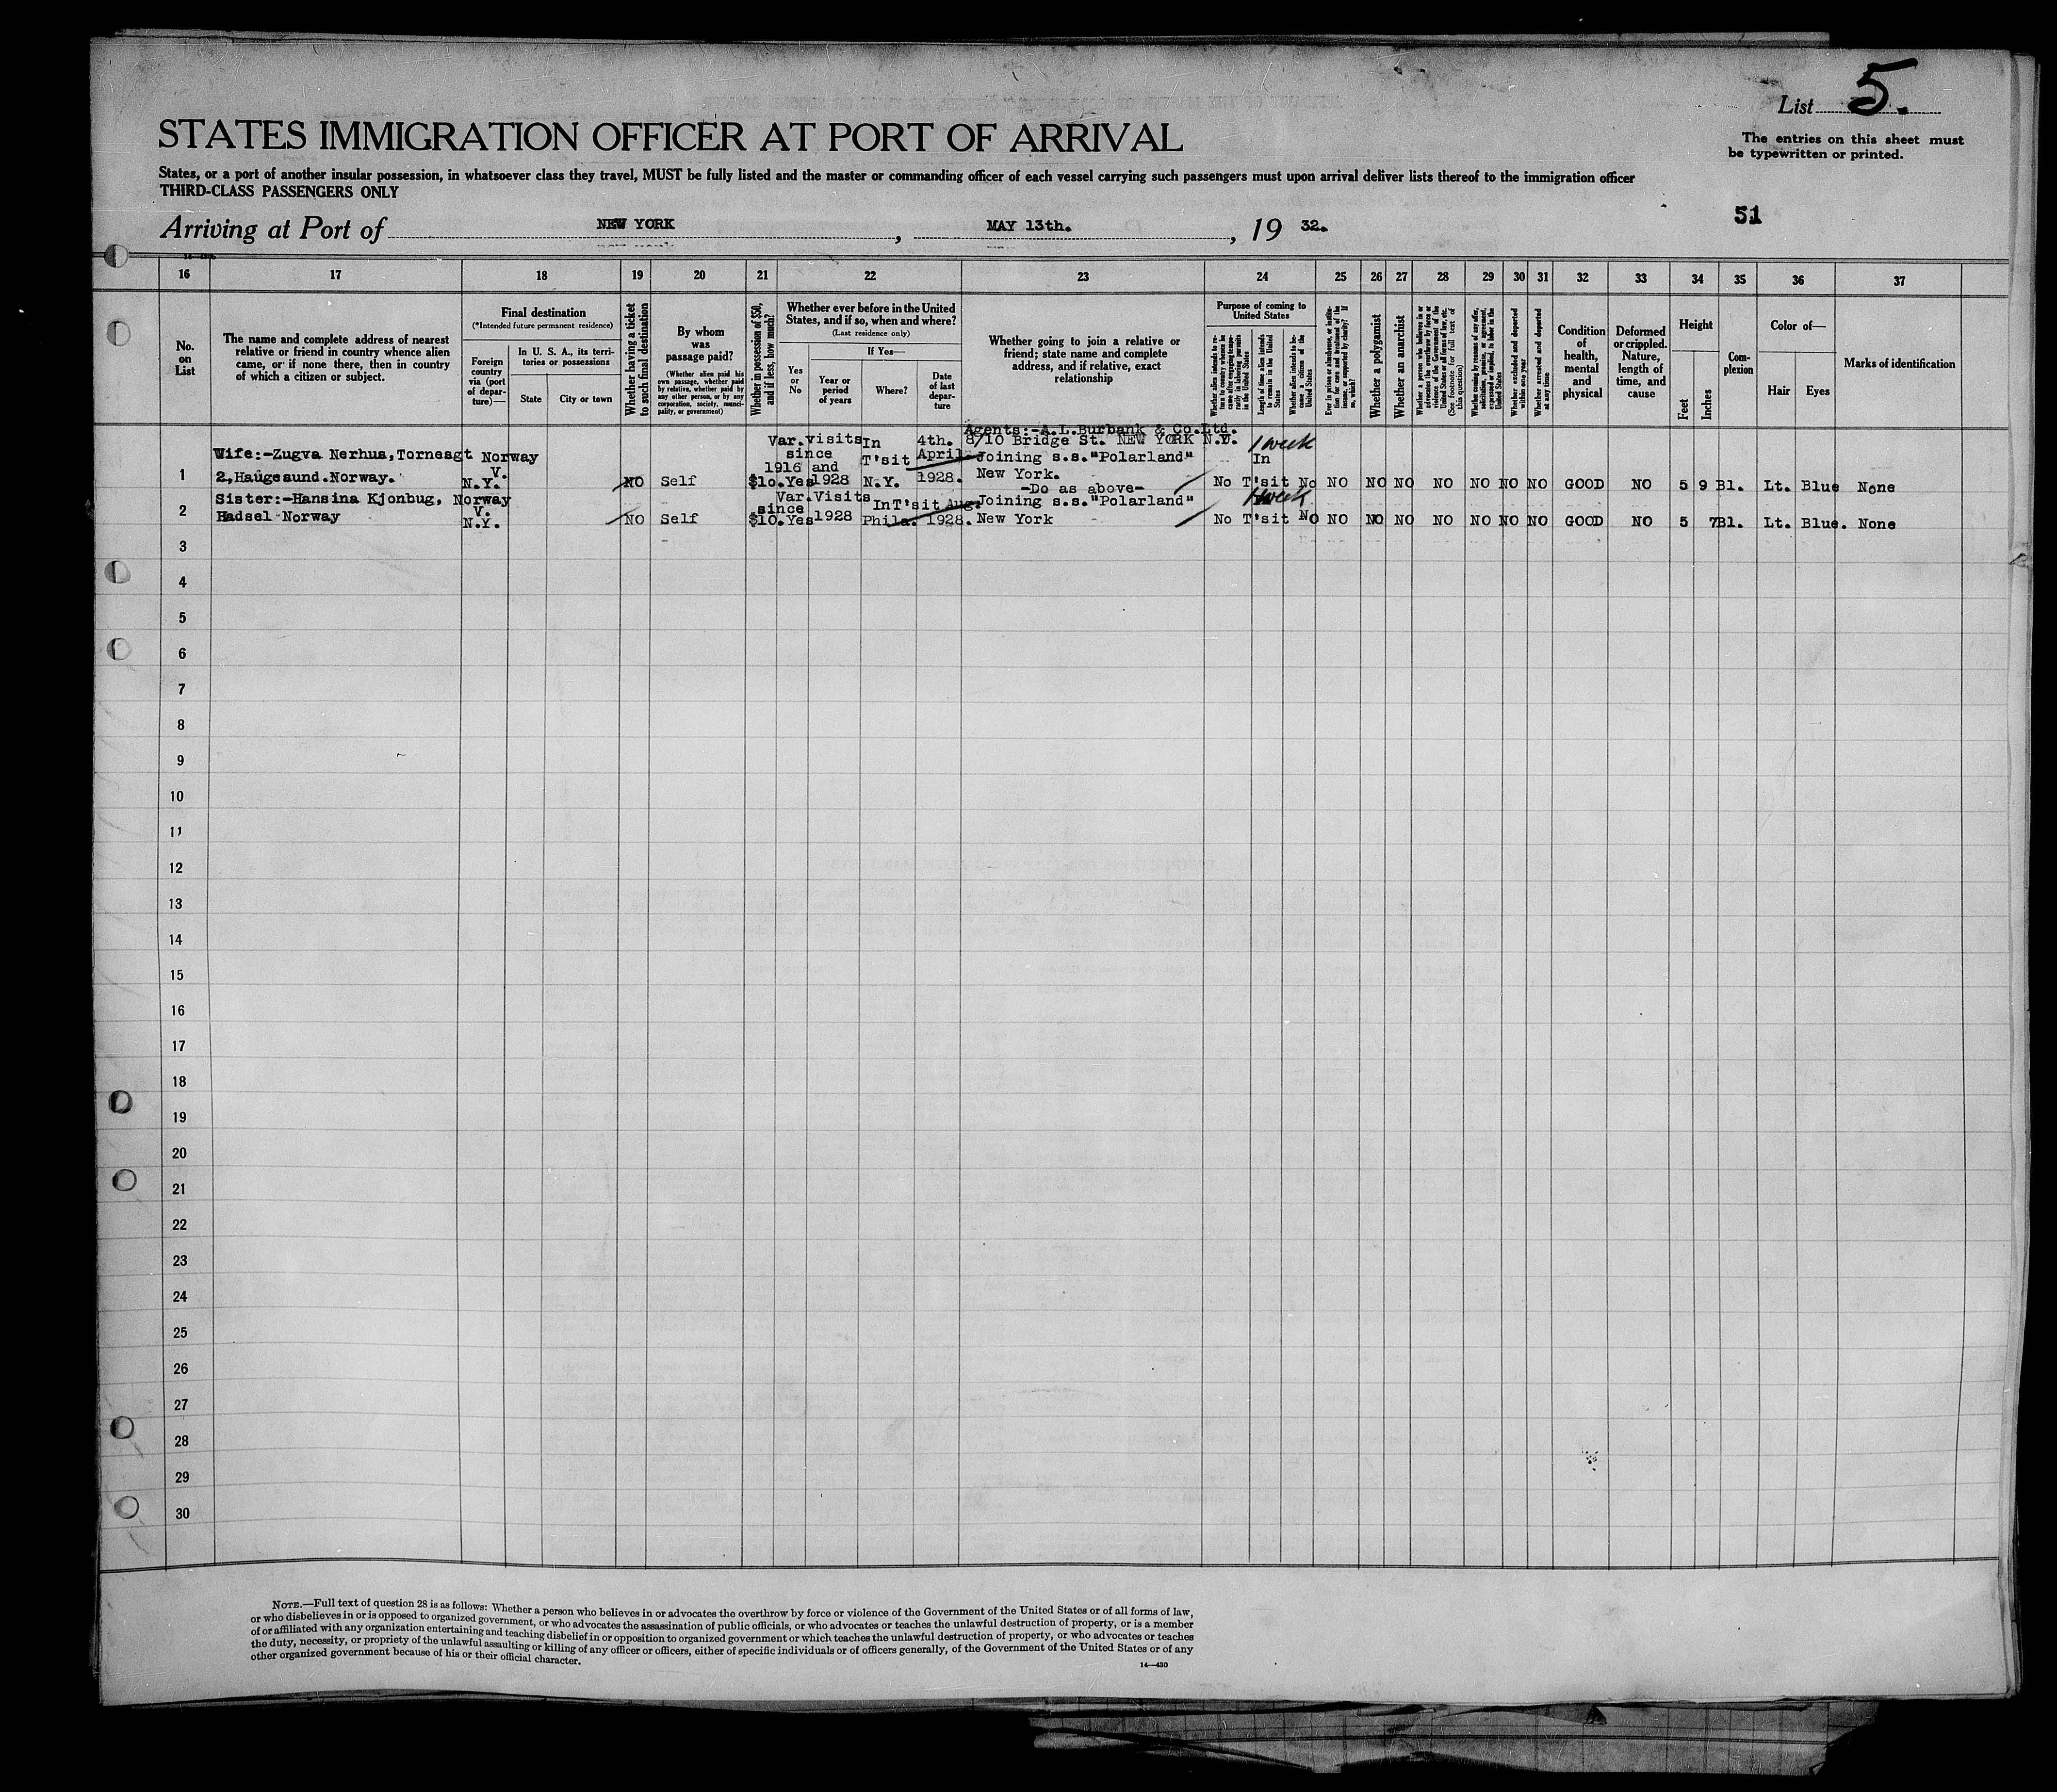 List 5.
STATES IMMIGRATION OFFICER AT PORT OF ARRIVAL
The entries on this sheet must
be typewritten or printed.
States, or a port of another insular possession, in whatsoever class they travel, MUST be fully listed and the master or commanding officer of each vessel carrying such passengers must upon arrival deliver lists thereof to the immigration officer
THIRD-CLASS PASSENGERS ONLY
51
Arriving at Port of NEW YORK, MAY 13th., 19 32.
16 17 18 19 20 21 22 23 24 25 26 27 28 29 30 31 32 33 34 35 36 37
No.
on
List
The name and complete address of nearest
relative or friend in country whence alien
came, or if none there, then in country
of which a citizen or subject.
Final destination
(*Intended future permanent residence)
Foreign
country
via (port
of depar-
ture)—
In U. S. A., its terri-
tories or possessions
State
City or town
Whether having a ticket
to such final destination
By whom
was
passage paid?
(Whether alien paid his
own passage, whether paid
by relative, whether paid by
any other person, or by any
corporation, society, munici-
pality, or government)
Whether in possession of $50,
and if less, how much?
Whether ever before in the United
States, and if so, when and where?
(Last residence only)
Yes
or
No
If Yes—
Year or
period
of years
Where?
Date
of last
depar-
ture
Whether going to join a relative or
friend; state name and complete
address, and if relative, exact
relationship
Purpose of coming to
United States
Length of time alien intends
to remain in the United
States
Whether alien intends to be-
come a citizen of the
United States
Whether a polygamist
Whether an anarchist
Whether excluded and deported
within one year
Whether arrested and deported
at any time
Condition
of
health,
mental
and
physical
Deformed
or crippled.
Nature,
length of
time, and
cause
Height
Feet
Inches
Com-
plexion
Color of—
Hair
Eyes
Marks of identification
Agents:-A.L.Burbank & Co.Ltd.
Wife:-Zugva Nerhus,Tornesgt Norway Var.visits since 1916 and In T'sit 4th. April 8/10 Bridge St. NEW YORK N.Y. 1 week
Joining s.s."Polarland" In
1 2,Haugesund.Norway. V. N.Y. NO Self $10.Yes 1928 N.Y. 1928. New York. No T'sit No NO NO NO NO NO NO NO GOOD NO 5 9 Bl. Lt. Blue None
-Do as above-
Sister:-Hansina Kjonbug, Norway Var.Visits since In T'sit Aug. Joining s.s."Polarland" week
2 Hadsel Norway V. N.Y. NO Self $10.Yes 1928 Phila. 1928. New York No T'sit No NO NO NO NO NO NO NO GOOD NO 5 7 Bl. Lt. Blue. None
3
4
5
6
7
8
9
10
11
12
13
14
15
16
17
18
19
20
21
22
23
24
25
26
27
28
29
30
NOTE.—Full text of question 28 is as follows: Whether a person who believes in or advocates the overthrow by force or violence of the Government of the United States or of all forms of law,
or who disbelieves in or is opposed to organized government, or who advocates the assassination of public officials, or who advocates or teaches the unlawful destruction of property, or is a member
of or affiliated with any organization entertaining and teaching disbelief in or opposition to organized government or which teaches the unlawful destruction of property, or who advocates or teaches
the duty, necessity, or propriety of the unlawful assaulting or killing of any officer or officers, either of specific individuals or of officers generally, of the Government of the United States or of any
other organized government because of his or their official character.
14—430